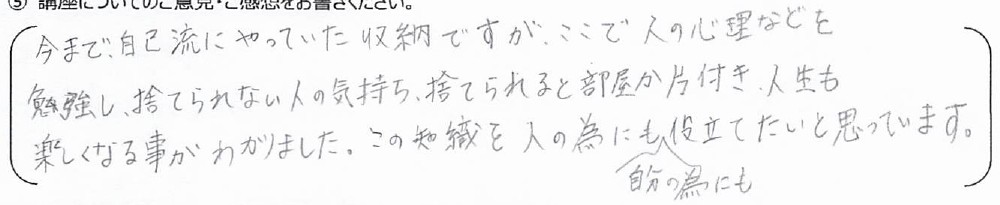 ⑤ 講座についてのご意見・ご感想をお書きください。
今まで、自己流にやっていた収納ですが、ここで人の心理などを
勉強し、捨てられない人の気持ち、捨てられると部屋が片付き、人生も
楽しくなる事がわかりました。この知識を人の為にも役立てたいと思っています。
自分の為にも